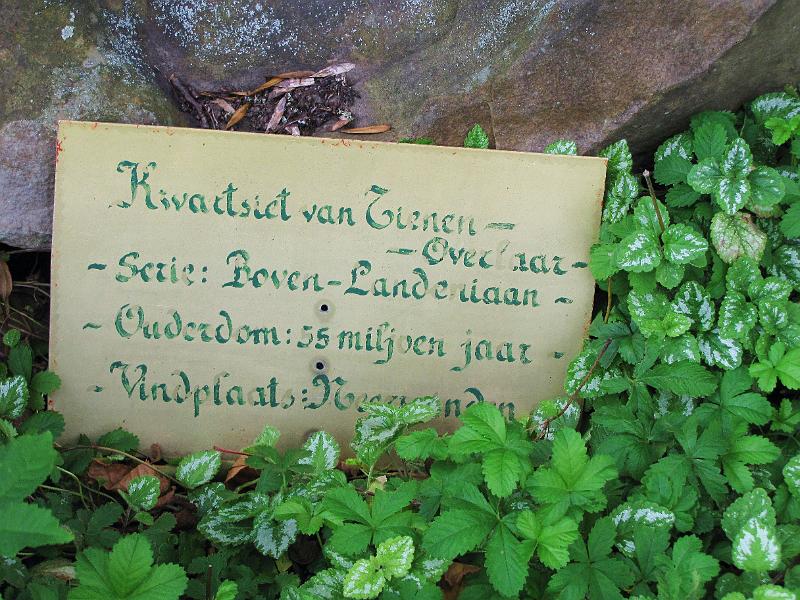 Kwartsiet van Tienen -
- Overlaar -
- Serie: Boven-Landeniaan -
- Ouderdom: 55 miljoen jaar -
- Vindplaats: